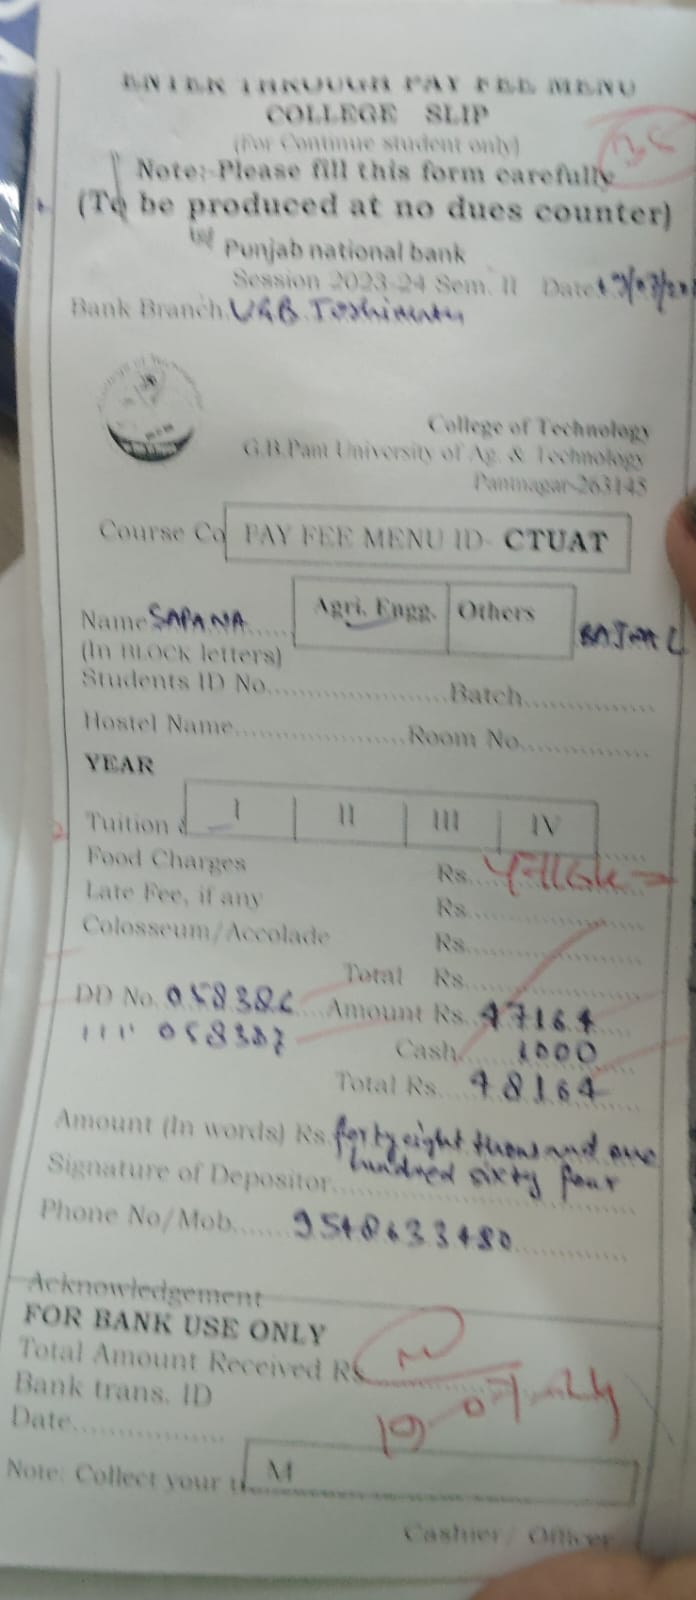 ENTER THROUGH PAY FEE MENU
COLLEGE SLIP
(For Continue student only)
Note:-Please fill this form carefully
(To be produced at no dues counter)
Punjab national bank
Session 2023-24 Sem. II Date
Bank Branch
College of Technology
G.B.Pant University of Ag. & Technology
Pantnagar-263145
Course Co PAY FEE MENU ID- CTUAT
Name SAPANA Agri. Engg. Others
(In BLOCK letters)
Students ID No....................Batch...............
Hostel Name....................Room No...............
YEAR
Tuition I II III IV
Food Charges Rs.
Late Fee, if any Rs.
Colosseum/Accolade Rs.
Total Rs.
DD No. Amount Rs. 47164
Cash 1000
Total Rs. 48164
Amount (In words) Rs. forty eight thousand one
hundred sixty four
Signature of Depositor
Phone No/Mob.
Acknowledgement
FOR BANK USE ONLY
Total Amount Received Rs
Bank trans. ID
Date
19-07-24
Note: Collect your M
Cashier/ Officer